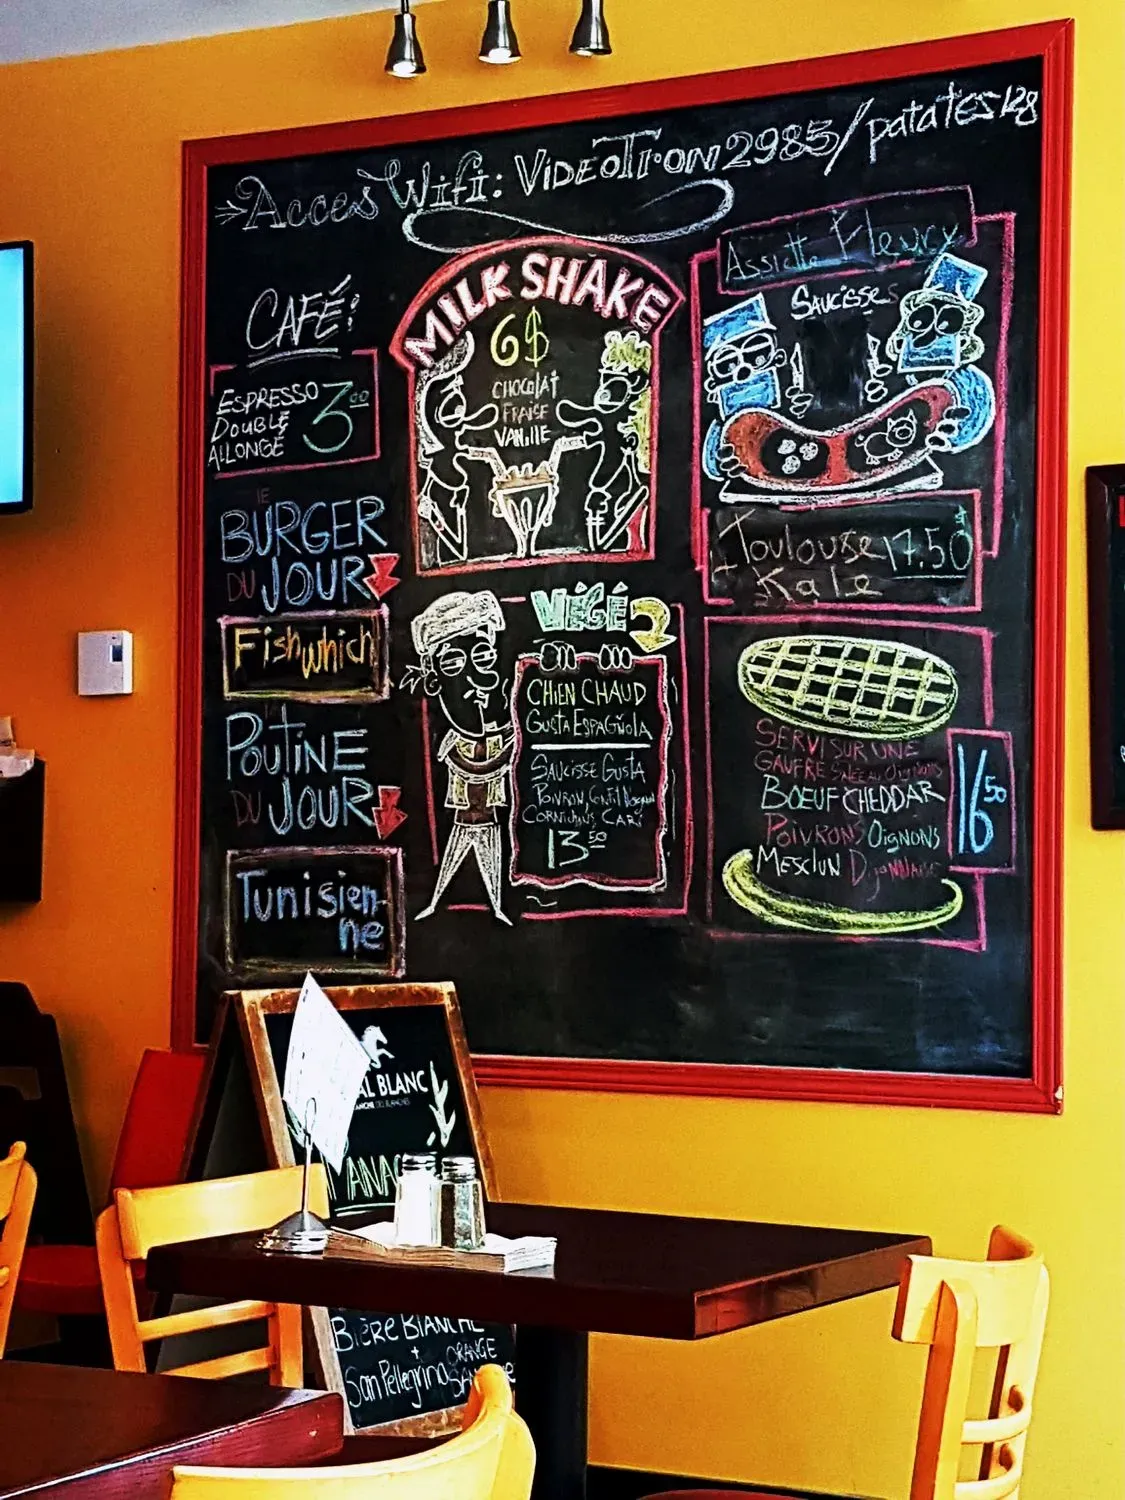 Acces Wifi: VIDEOTRON2985/patates128
CAFÉ:
ESPRESSO
DOUBLE
ALLONGÉ
3.00
LE
BURGER
DU JOUR
Fishwhich
POUTINE
DU JOUR
Tunisien-
ne
MILK SHAKE
6$
CHOCOLAT
FRAISE
VANILLE
VÉGÉ
CHIEN CHAUD
GUSTA ESPAGNOLA
SAUCISSE GUSTA
POIVRON,
CORNICHONS, CARI
13.50
Assiette Fleury
SAUCISSES
Toulouse
Kale
17.50$
SERVI SUR UNE
GAUFRE SALÉE AU OIGNONS
BOEUF CHEDDAR
POIVRONS OIGNONS
MESCLUN DIJONNAISE
16.50
AL BLANC
BLANCHE DES BLANCHES
ANA
BIÈRE BLANCHE
+
San Pellegrino ORANGE